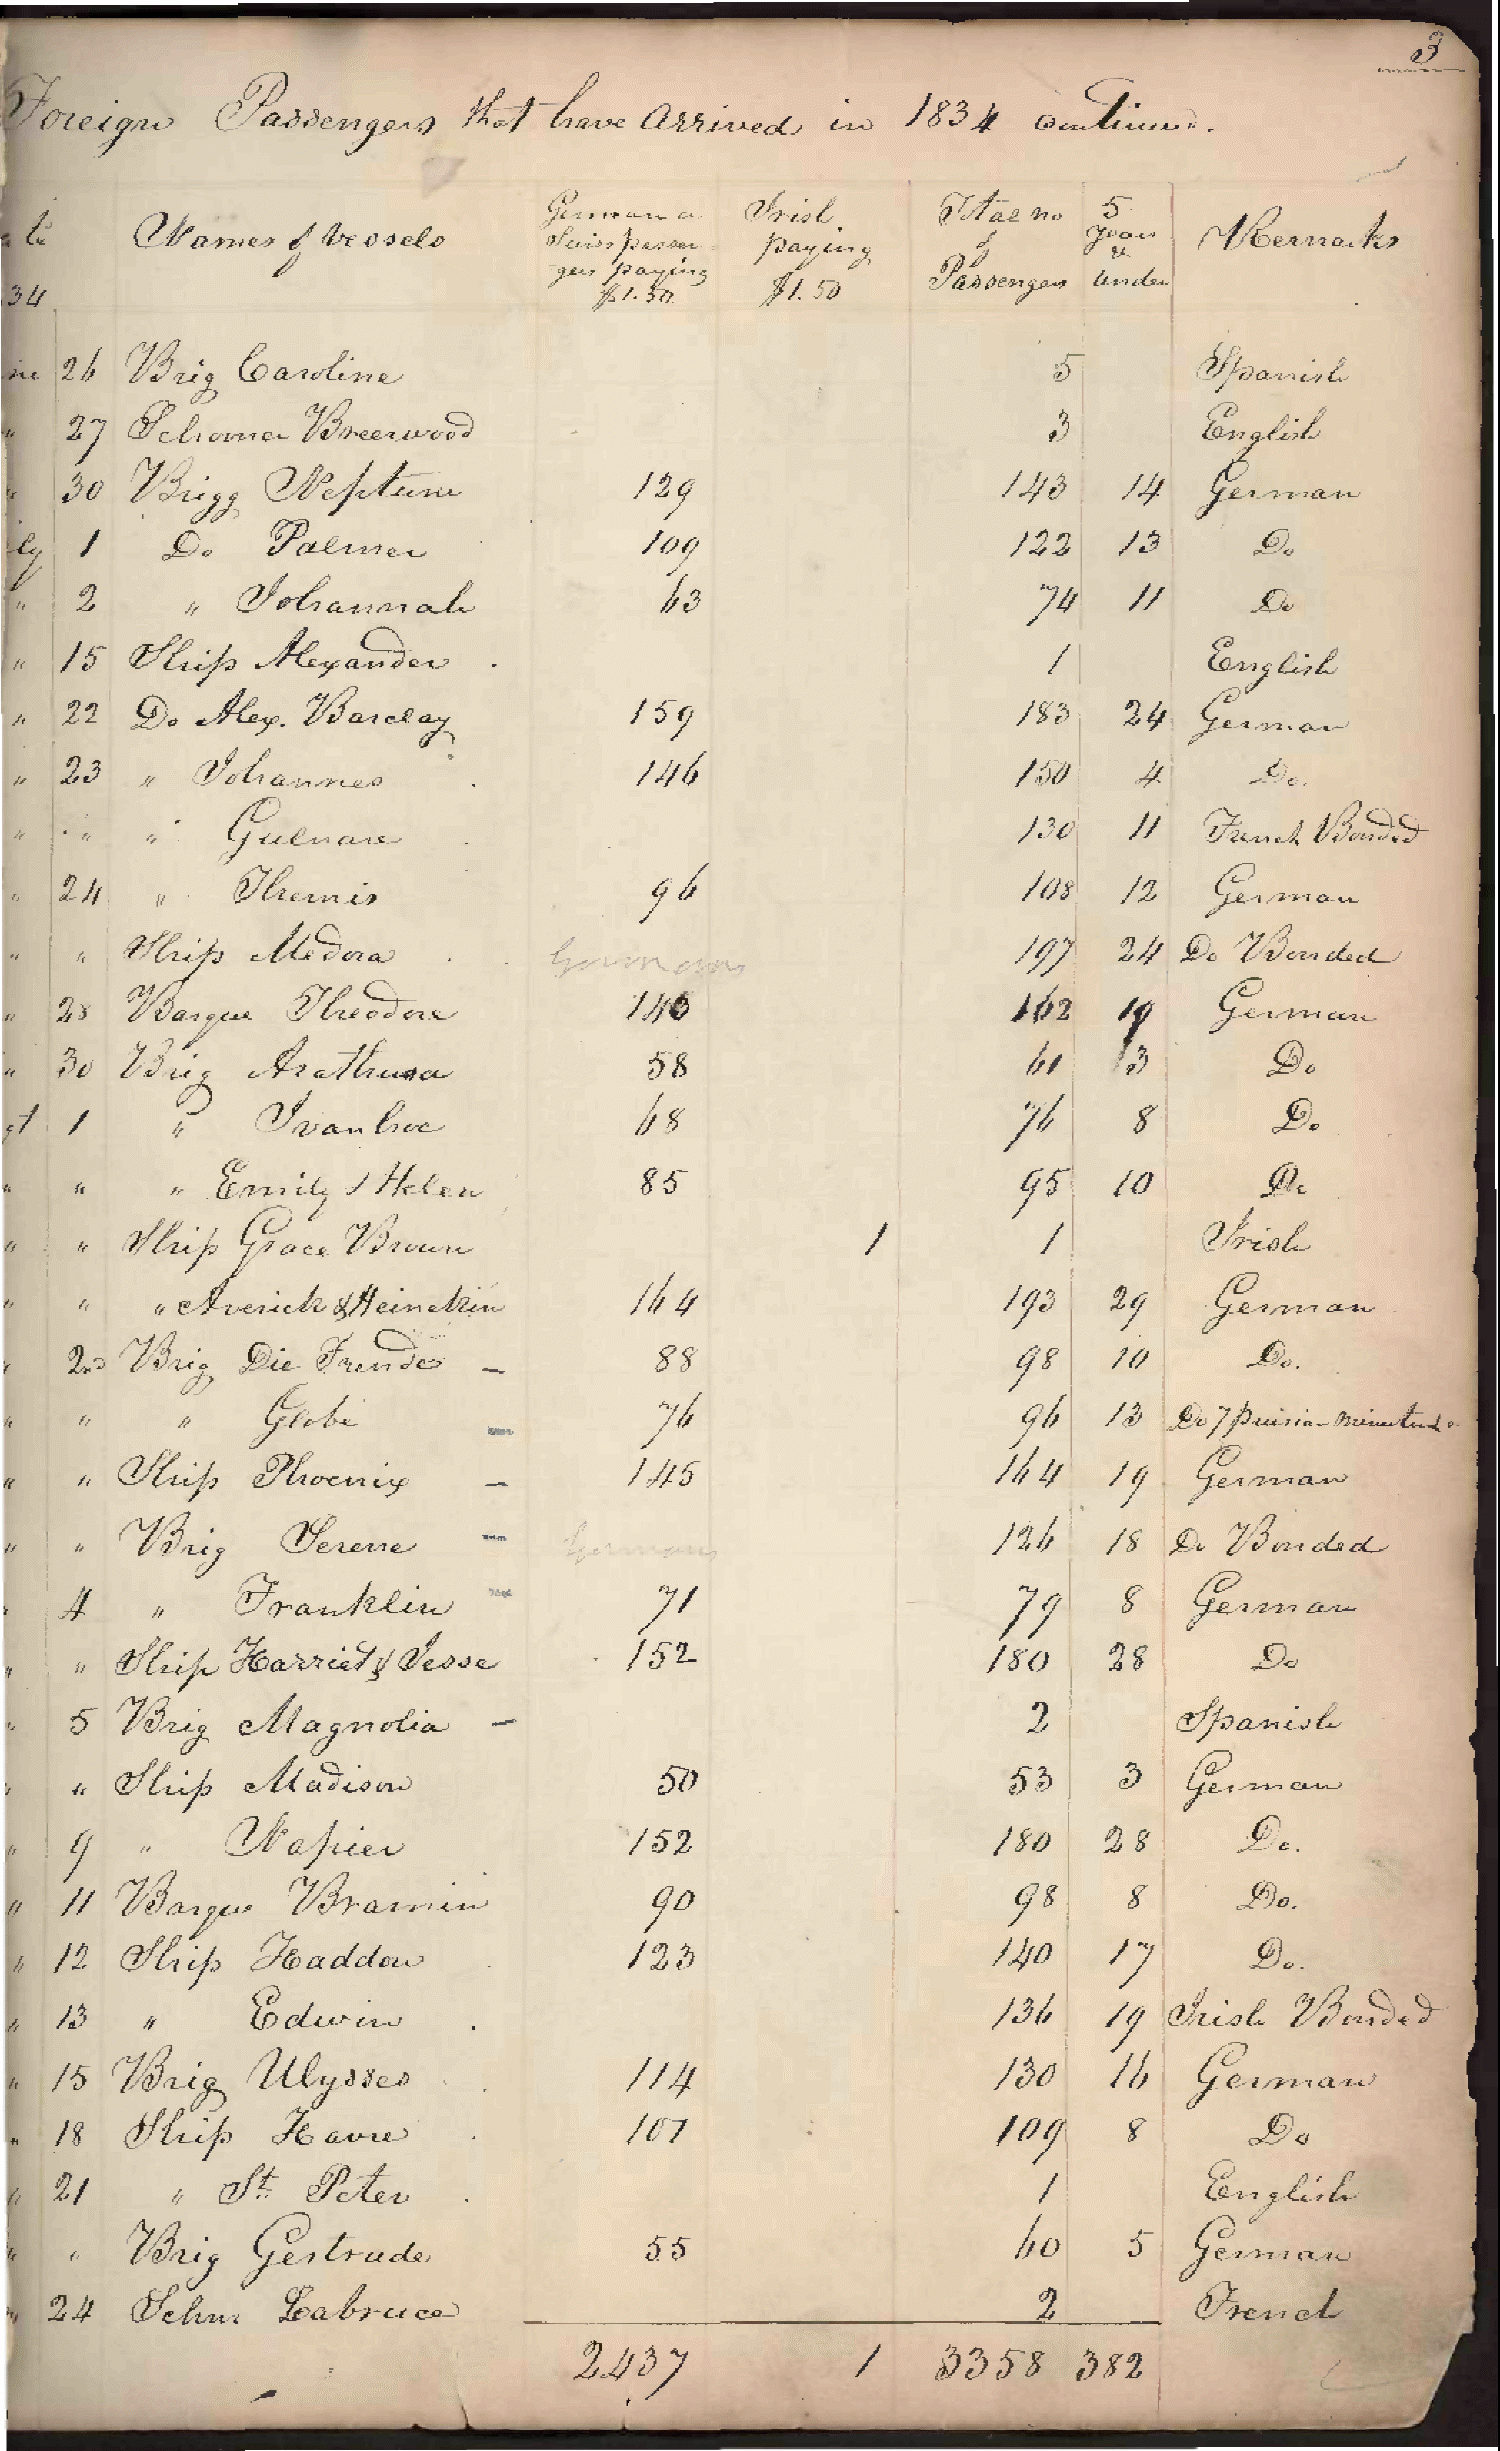 3
Foreign Passengers that have Arrived in 1834 continued.
34
Names of Vessels
German &
Swiss passen-
gers paying
$1.50
Irish
paying
$1.50
Total no
of
Passengers
5
years
&
under
Remarks
26 Brig Caroline 5 Spanish
" 27 Schooner Breerwood 3 English
" 30 Brigg Neptune 129 143 14 German
ly 1 Do Palmer 109 122 13 Do
" 2 " Johannah 63 74 11 Do
" 15 Ship Alexander 1 English
" 22 Do Alex. Barclay 159 183 24 German
" 23 " Johannes 146 150 4 Do.
" " " Gulnare 130 11 French Bonded
" 24 " Themis 96 108 12 German
" " Ship Medora Germans 197 24 Do Bonded
" 28 Barque Theodore 143 162 19 German
" 30 Brig Arathusa 58 61 3 Do
gt 1 " Ivanhoe 68 76 8 Do
" " " Emily & Helen 85 95 10 Do
" " Ship Grace Brown 1 1 Irish
" " " Averick & Heinekin 164 193 29 German
" 2nd Brig Die Frende 88 98 10 Do.
" " " Globe 76 96 13 Do 7
" " Ship Phoenix 145 164 19 German
" " Brig Serene Germans 126 18 Do Bonded
" 4 " Franklin 71 79 8 German
" " Ship Harriet & Jesse 152 180 28 Do
" 5 Brig Magnolia 2 Spanish
" " Ship Madison 50 53 3 German
" 9 " Napier 152 180 28 Do.
" 11 Barque Bramin 90 98 8 Do.
" 12 Ship Haddon 123 140 17 Do.
" 13 " Edwin 136 19 Irish Bonded
" 15 Brig Ulysses 114 130 16 German
" 18 Ship Havre 101 109 8 Do
" 21 " St. Peter 1 English
" " Brig Gertrude 55 60 5 German
" 24 Schnr Labruce 2 French
2437 1 3358 382